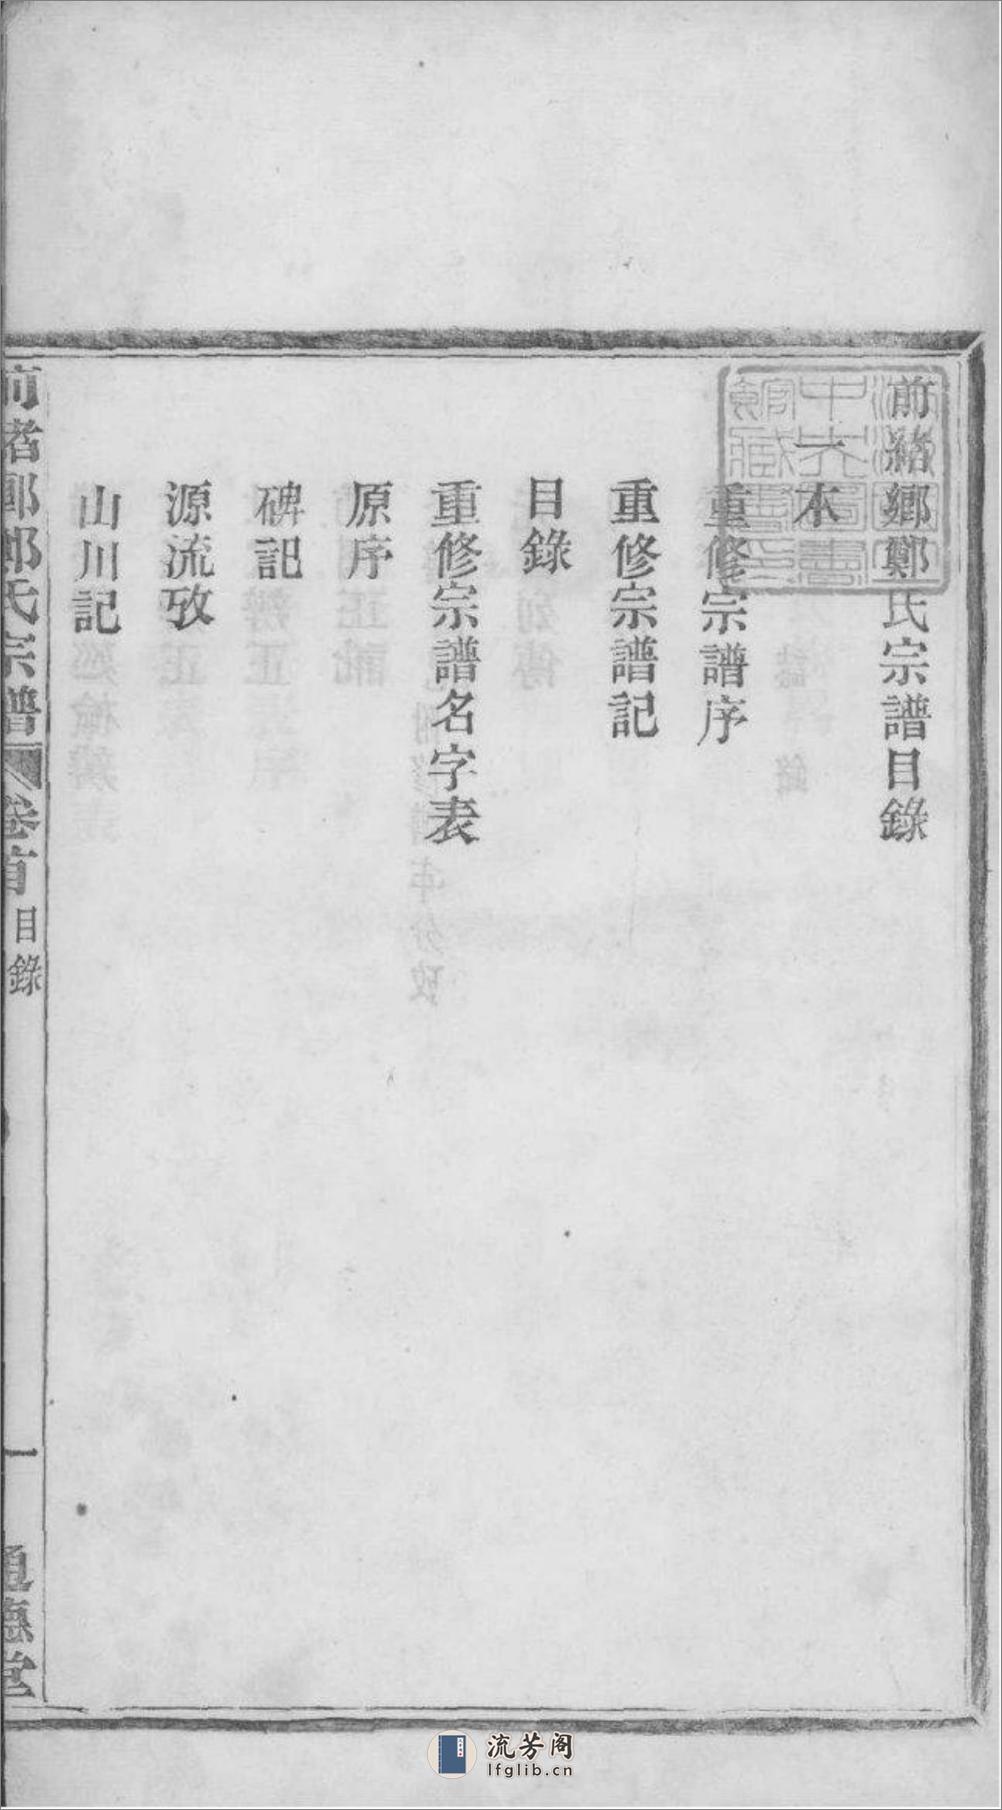 前緒鄉鄭氏宗譜目錄
一本
重修宗譜序
重修宗譜記
目錄
重修宗譜名字表
原序
碑記
源流攷
山川記
氏宗譜 卷首 目錄 一 通德堂
流芳阁
lfglib.cn